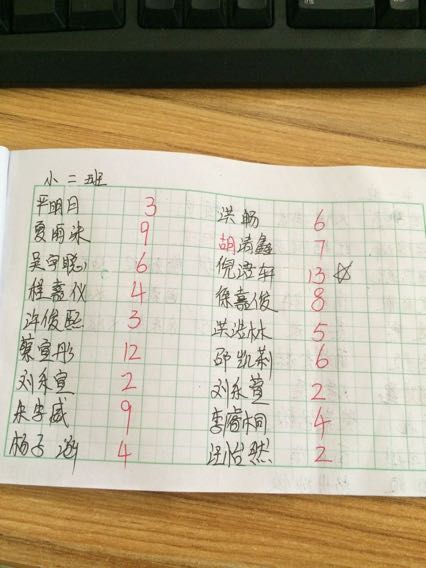 小二班
平明日 3 洪畅 6
夏雨 9 胡靖鑫 7
吴宇聪 6 倪浩轩 13 ☆
程嘉仪 4 徐嘉俊 8
许俊熙 3 洪浩林 5
蔡宣彤 12 邵凯莉 6
刘东宣 2 刘东萱 2
朱李威 9 李睿桐 4
杨子 4 汪怡然 2